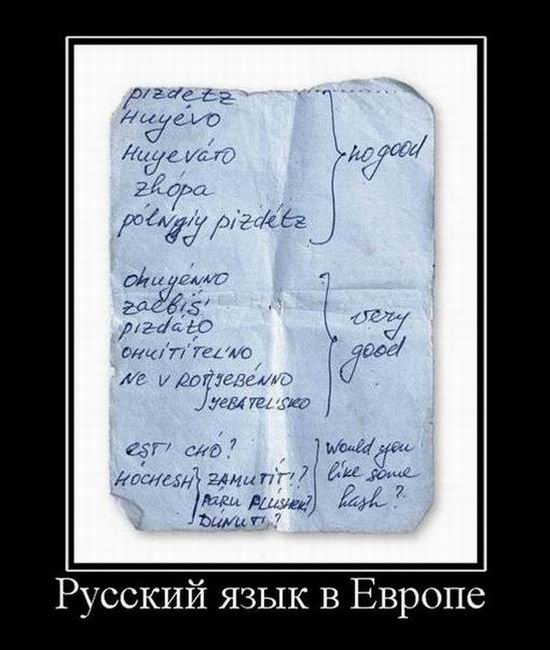 pizdétz
Huyévo
Huyeváto
zhópa
pólnyiy pizdétz
no good
ohuyénno
zaebíś
pizdáto
OHUÍTÍTEL'NO
NE V ROTJEBÉNNO
JEBATEL'SKO
very
good
EST' CHÓ?
HÓCHESH ZAMUTÍT'?
PARU PLÚSHEK?
DUNUT'?
Would you
like some
hash?
Русский язык в Европе